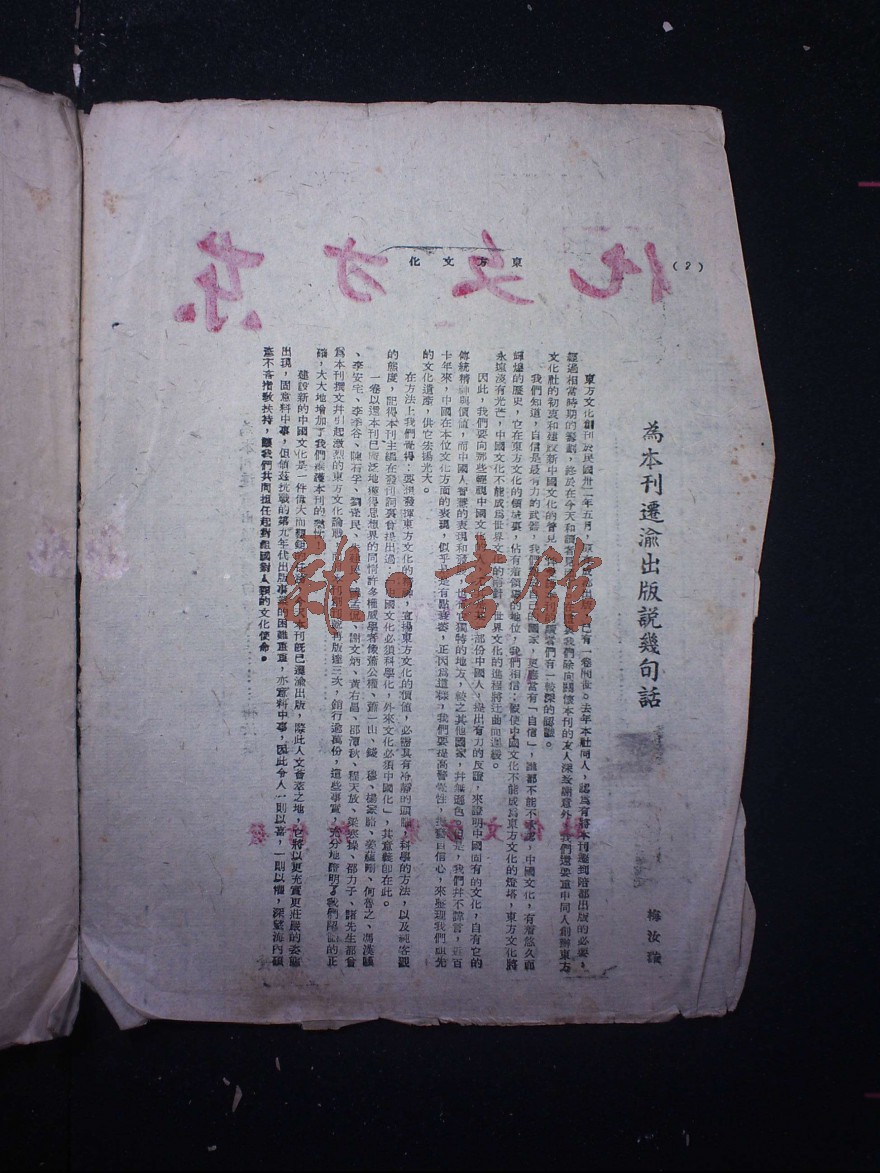 東方文化
（2）
為本刊遷渝出版説幾句話
梅汝璇
東方文化創刊於民國卅一年五月，已有一卷問世。去年本社同人，認為有將本刊遷到陪都出版的必要，
經過相當時期的籌劃，終於在今天和讀者見面，我們除向關懷本刊的友人深致謝意外，我們還要重申同人創辦東方
文化社的初衷和建設新中國文化的管見，讀者們有一較深的認識。
我們知道，自信是最有力的武器，我們自己的國家，更應當有「自信」，誰都不能不承認，中國文化，有着悠久而
輝煌的歷史，它在東方文化的領域裏，佔有着領導的地位，我們相信：假使中國文化不能成為東方文化的燈塔，東方文化將
永遠沒有光芒，中國文化不能成為世界文化的指針，世界文化的進程將迂曲而遲緩。
因此，我們要向那些輕視中國文化的部份中國人，提出有力的反證，來證明中國固有的文化，自有它的
傳統精神與價值，而中國人智慧的表現和發明，也有它獨特的地方，較之其他國家，并無遜色，但是，我們并不諱言，近百
十年來，中國在本位文化方面的表現，似乎是有點萎靡，正因為這樣，我們要提高警覺性，振發自信心，來整理我們祖先
的文化遺產，供它去揚光大。
在方法上我們覺得：要想發揮東方文化的精神，宣揚東方文化的價值，必需具有冷靜的頭腦，科學的方法，以及純客觀
的態度，記得本刊主編在發刊詞裏會提出過：「中國文化必須科學化，外來文化必須中國化」，其意義即在此。
一卷以還本刊已廣泛地獲得思想界的同情許多權威學者像蕭公權、蕭一山、錢　穆、楊家駱、姜蘊剛、何魯之、馮漢驥
、李安宅、李季谷、陳石孚、劉覺民、朱謙之、謝文炳、黃右昌、邵潭秋、程天放、梁寒操、邵力子、諸先生都會
為本刊撰文并引起激烈的東方文化論戰，創刊號再版達三次，銷行逾萬份，這些事實，充分地證明了我們路徑的正
確，大大地增加了我們維護本刊的熱忱。
建設新的中國文化是一件偉大而艱鉅的工作，今天本刊旣已遷渝出版，際此人文薈萃之地，它將以更充實更莊嚴的姿態
出現，固意料中事，但値茲抗戰的第九年代出版事業的困難重重，亦意料中事，因此令人一則以喜，一則以懼，深望海內碩
彥不吝指敎扶持，讓我們共同担任起對祖國對人類的文化使命。
雜·書館